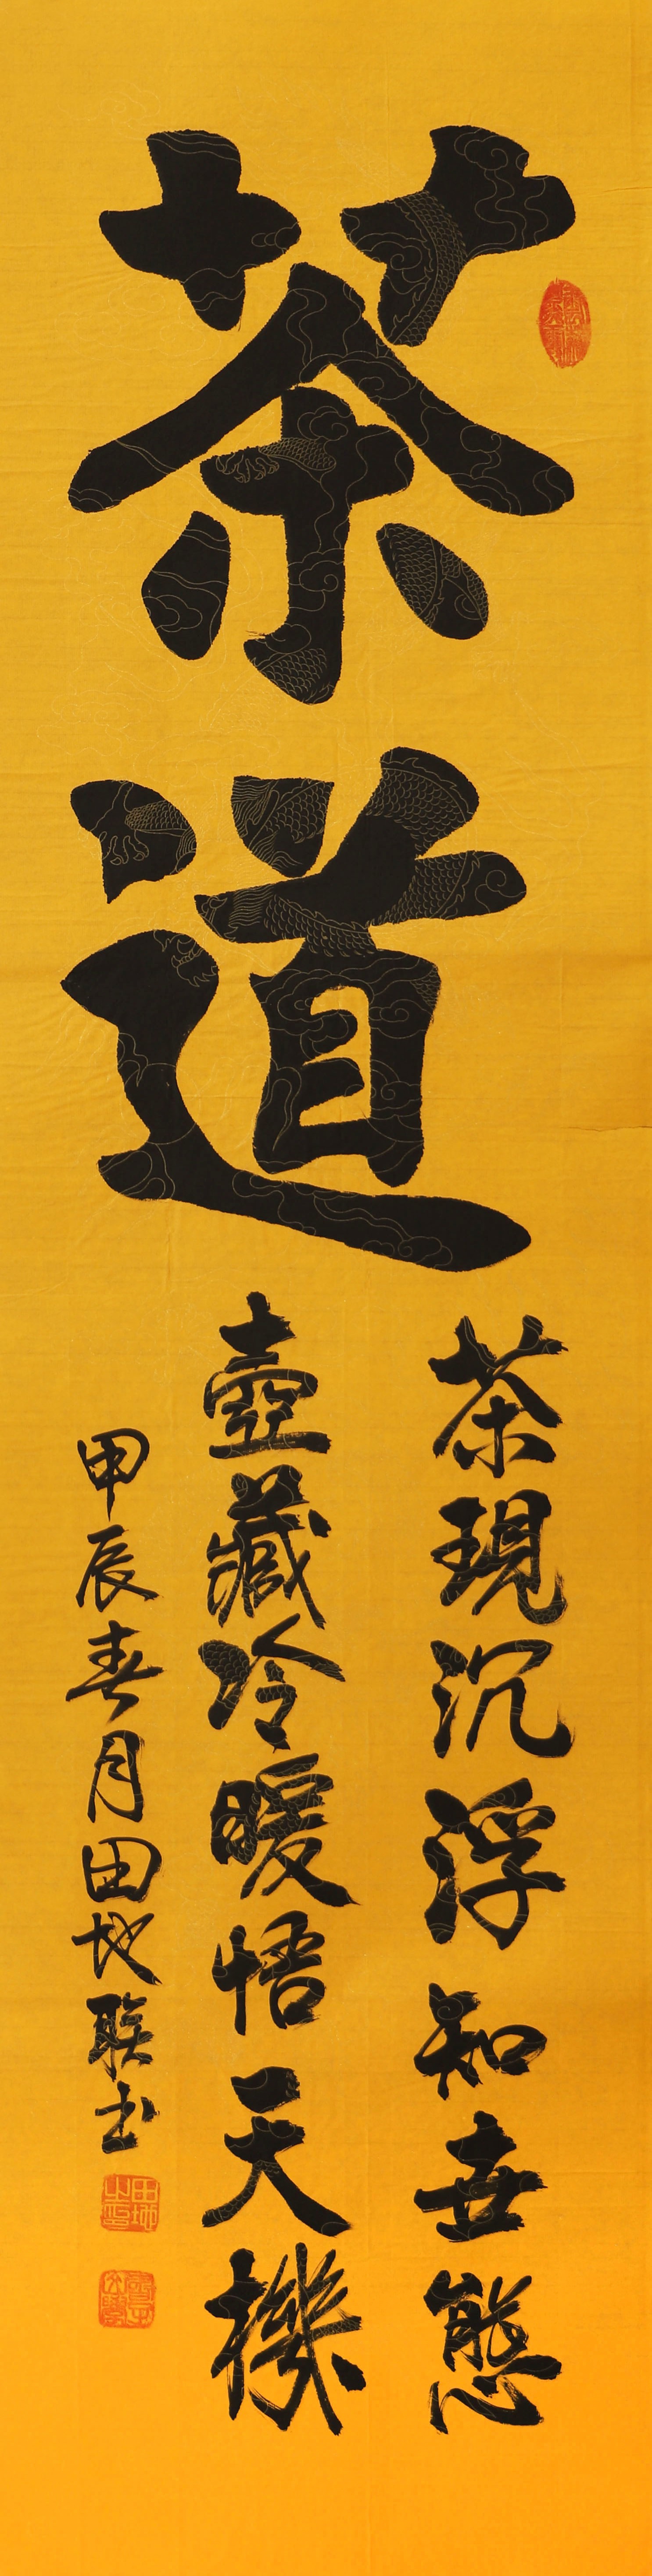 茶道
茶現沉浮知世態
壺藏冷暖悟天機
甲辰春月田地联书